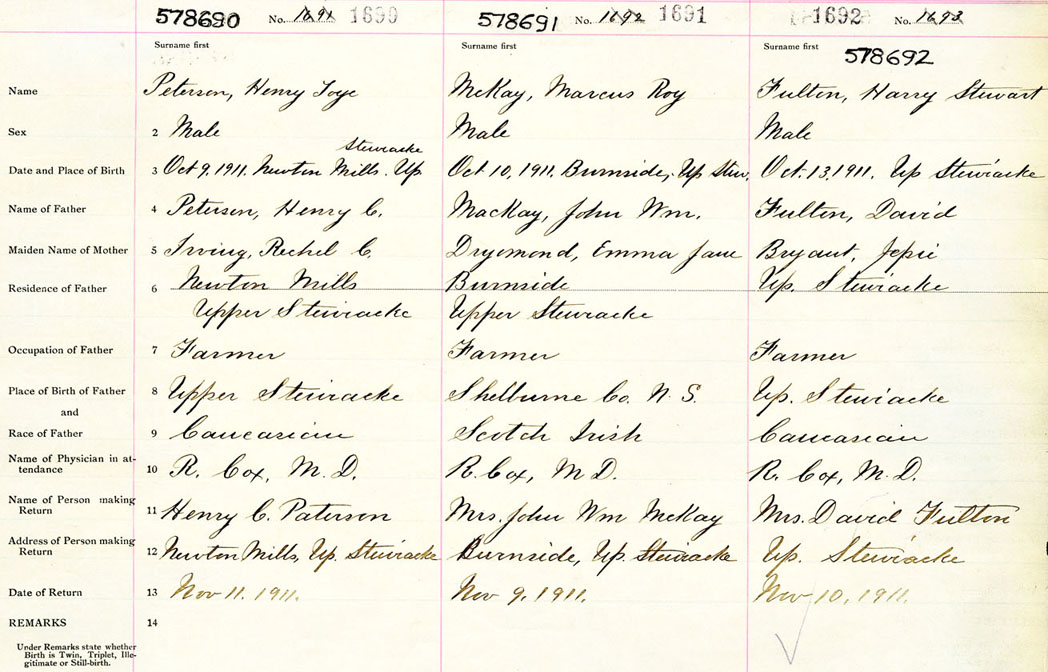 578690 No. 1691 1690 578691 No. 1692 1691 1692 No. 1693
Surname first Surname first Surname first 578692
Name Peterson, Henry Toye McKay, Marcus Roy Fulton, Harry Stewart
Sex 2 Male Male Male
Stewiacke
Date and Place of Birth 3 Oct 9, 1911. Newton Mills. Up Oct 10, 1911. Burnside, Up Stew. Oct. 13, 1911. Up Stewiacke
Name of Father 4 Peterson, Henry C. MacKay, John Wm. Fulton, David
Maiden Name of Mother 5 Irving, Rechel C. Dryomond, Emma Jane Bryant, Jessie
Residence of Father 6 Newton Mills Burnside Up. Stewiacke
Upper Stewiacke Upper Stewiacke
Occupation of Father 7 Farmer Farmer Farmer
Place of Birth of Father 8 Upper Stewiacke Shelburne Co. N. S. Up. Stewiacke
and
Race of Father 9 Caucasian Scotch Irish Caucasian
Name of Physician in at-
tendance 10 R. Cox, M. D. R. Cox, M D. R. Cox, M. D.
Name of Person making
Return 11 Henry C. Paterson Mrs. John Wm McKay Mrs. David Fulton
Address of Person making
Return 12 Newton Mills, Up. Stewiacke Burnside, Up. Stewiacke Up. Stewiacke
Date of Return 13 Nov 11. 1911. Nov 9, 1911. Nov 10, 1911.
REMARKS 14
Under Remarks state whether
Birth is Twin, Triplet, Ille-
gitimate or Still-birth.